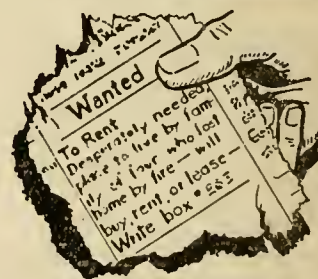 Wanted
To Rent
Desperately needed
place to live by fam
ily of four who lost
home by fire — will
buy, rent, or lease —
Write box